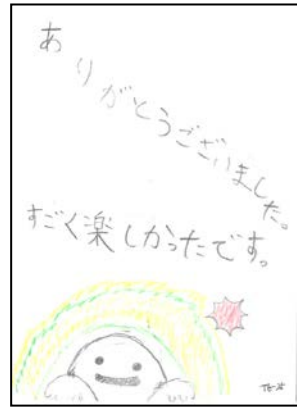 ありがとうございました。
すごく楽しかったです。